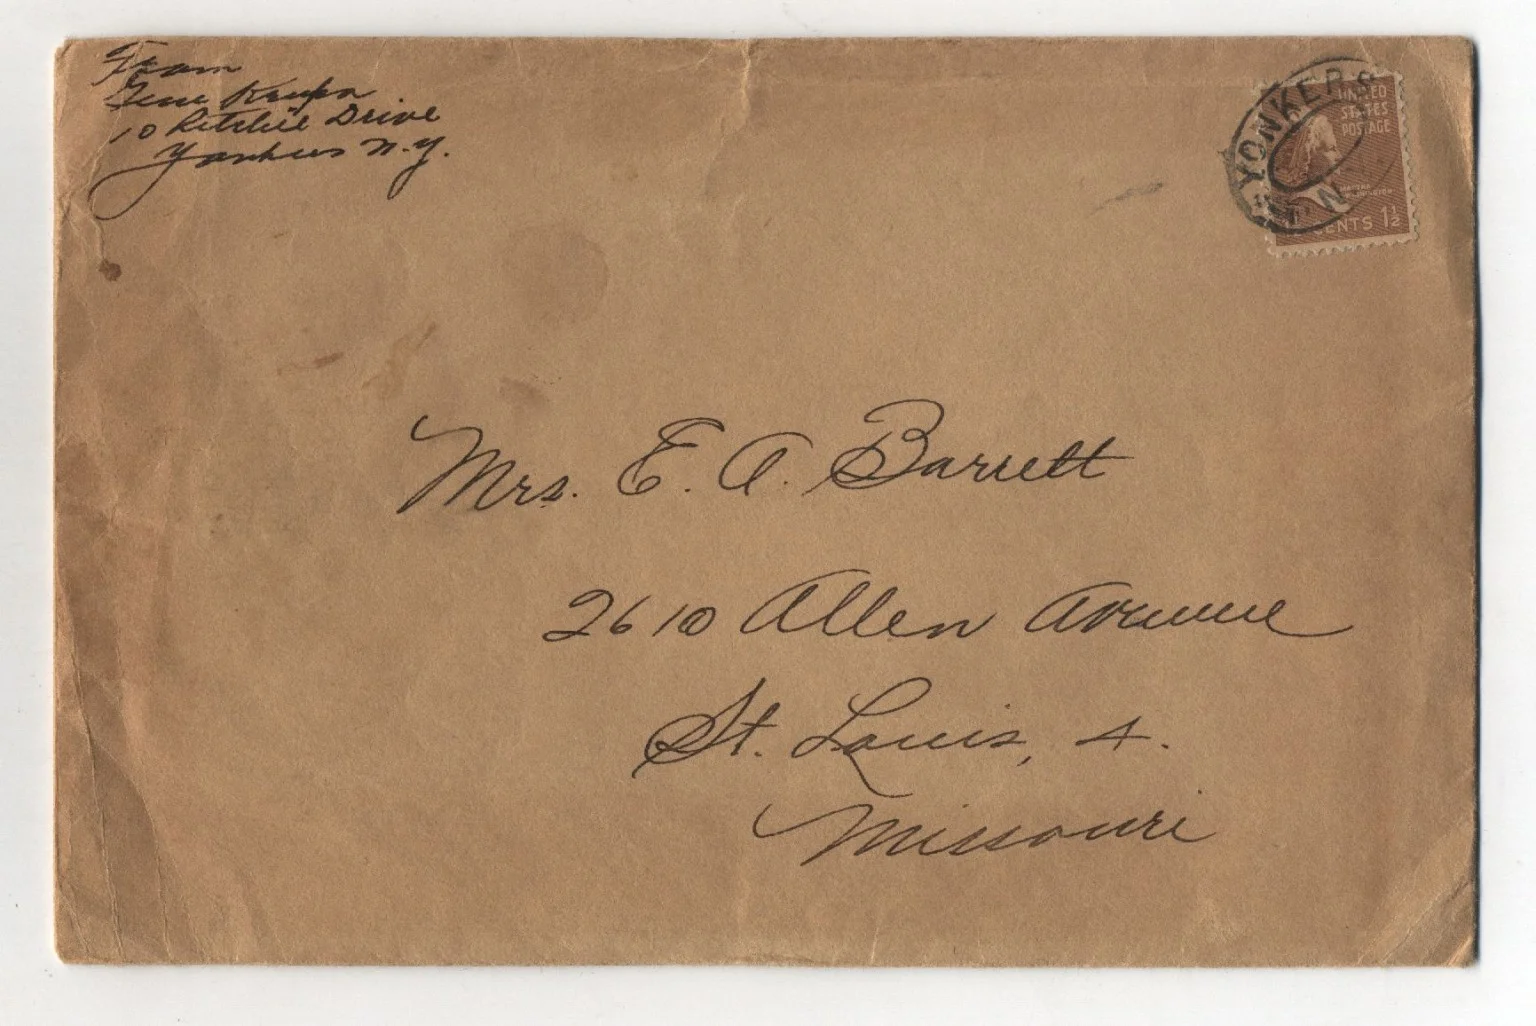 From
Gene Krupa
10 Ritchie Drive
Yonkers N.Y.
YONKERS
N.
UNITED
STATES
POSTAGE
CENTS 1½
Mrs. E. A. Barrett
2610 Allen Avenue
St. Louis, 4.
Missouri